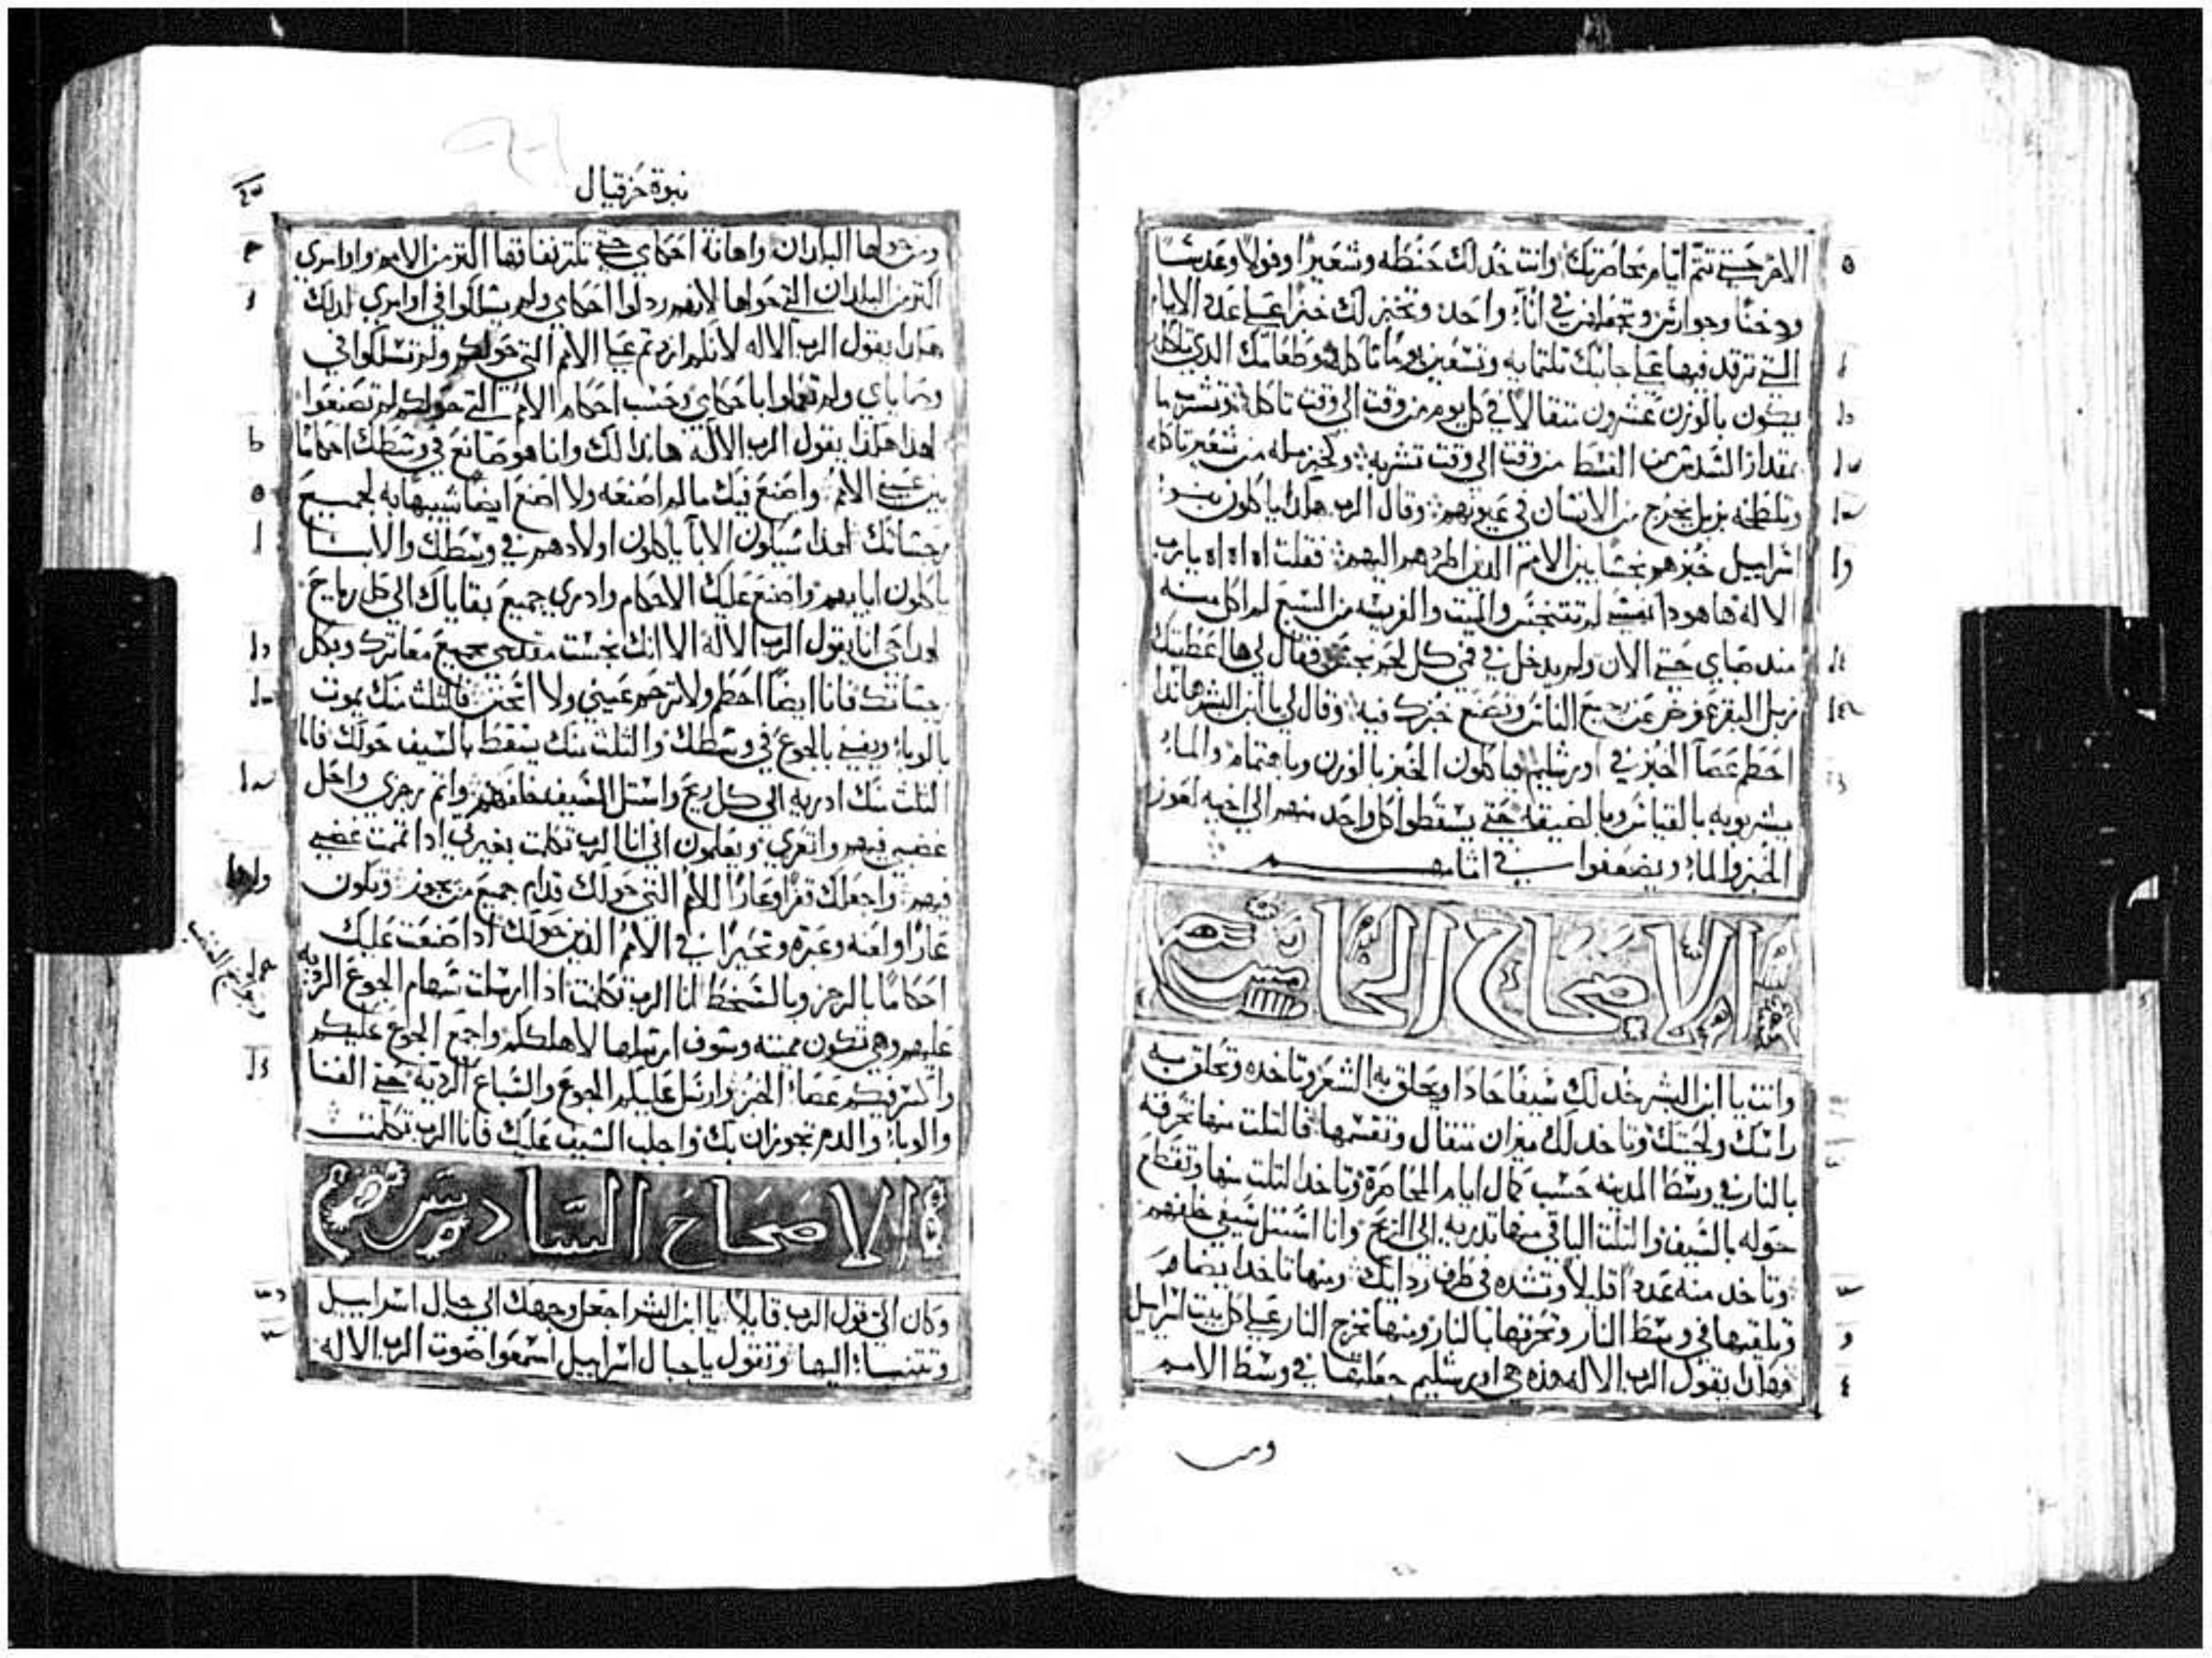 الامر حتى تتم ايام محاصرتك وانت خد لك حنطه وشعيرا وفولا وعدسا
ودخنا وجوارش وتجعلهن في اناء واحد وتخبز لك خبزا على عدد الايام
التي ترقد فيها على جانبك تلتمايه وتسعين يوما تاكله وطعامك الدي تاكل
يكون بالوزن عشرون متقالا في كل يوم من وقت الى وقت تاكله وتشرب ما
بمقدار السدس من القسط من وقت الى وقت تشربه وكخبز مله من شعير تاكله
وتلطخه بزبل يخرج من الانسان في عيونهم وقال الرب هكدا ياكلون بنو
اسراييل خبزهم نجسا بين الامم الدين اطردهم اليهم فقلت اه اه اه يا رب
الا له ها هودا نفسي لم تتنجس والميت والفريسه من السبع لم اكل منه
مند صباي حتى الان ولم يدخل في فمي كل لحم نجس فقال لي ها اعطيتك
زبل البقر عوض عن رجيع الناس وتصنع خبزك فيه وقال لي يا ابن البشر هاندا
احطم عصا الخبز في اورشليم فياكلون الخبز بالوزن وباهتمام والماء
يشربونه بالقياس وبالضيقه حتى يسقطوا كل واحد منهم الى اخيه لعوز
الخبز والماء ويضعفوا في اتامهم
الاصحاح الخامس
وانت يا ابن البشر خد لك سيفا حادا ويحلق به الشعر وتاخده وتحلق به
راسك ولحيتك وتاخد لك ميزان متقال وتقسمها فالتلت منها تحرقه
بالنار في وسط المدينه حسب كمال ايام المحاصرة وتاخد التلت منها وتقطع
حوله بالسيف والتلت الباقي منها تدريه الى الريح وانا استل سيفي خلفهم
وتاخد منه عددا قليلا وتشده في طرف ردايك ومنها تاخد ايضا
وتلقيها في وسط النار وتحرقها بالنار ومنها تخرج النار على كل بيت اسراييل
هكدا يقول الرب الاله هده هي اورشليم جعلتها في وسط الامم
ومن
نبوة حزقيال
ومن حولها البلدان واهانة احكامي حتى تكتر نفاقها اكتر من الامم واوامري
اكتر من البلدان التي حولها لانهم ردلوا احكامي ولم يسلكوا في اوامري لدلك
هكدا يقول الرب الاله لانكم ازدتم على الامم التي حولكم ولم تسلكوا في
وصاياي ولم تعملوا باحكامي وحسب احكام الامم التي حولكم لم تصنعوا
لهدا هكدا يقول الرب الاله هاندا لك وانا هو صانع في وسطك احكاما
بين عيني الامم واصنع فيك ما لم اصنعه ولا اصنع ايضا شبيها به لجميع
رجساتك لهدا سيكون الابا ياكلون اولادهم في وسطك والابنا
ياكلون اباييهم واصنع عليك الاحكام وادري جميع بقاياك الى كل رياح
لهدا حي انا يقول الرب الاله الا انك نجست مقدسي بجميع معاترك وبكل
رجساتك فانا ايضا احطم ولا ترحم عيني ولا اتحنن فالتلت منك يموت
بالوباء ويفنى بالجوع في وسطك والتلت منك يسقط بالسيف حولك فاما
التلت منك ادريه الى كل ريح واستل السيف خلفهم واتم رجزي واحل
غضبي فيهم واتعزي ويعلمون اني انا الرب تكلمت بغيرتي ادا تممت غضبي
فيهم واجعلك قفرا وعارا للامم التي حولك قدام جميع من يجوز وتكون
عارا ولعنه وعبرة وتحيرا في الامم الدين حولك ادا صنعت عليك
احكاما بالرجز وبالسخط انا الرب تكلمت ادا ارسلت سهام الجوع الرديه
عليهم وهي تكون مميته وسوف ارسلها لاهلككم واجمع الجوع عليكم
واكسر فيكم عصا الخبز وارسل عليكم الجوع والسباع الرديه حتى الفنا
والوباء والدم تجوزان بك واجلب السيف عليك فانا الرب تكلمت
الاصحاح السادس
وكان الي قول الرب قايلا يا ابن البشر اجعل وجهك الى جبال اسراييل
وتتنبا اليها وتقول يا جبال اسراييل اسمعوا صوت الرب الاله